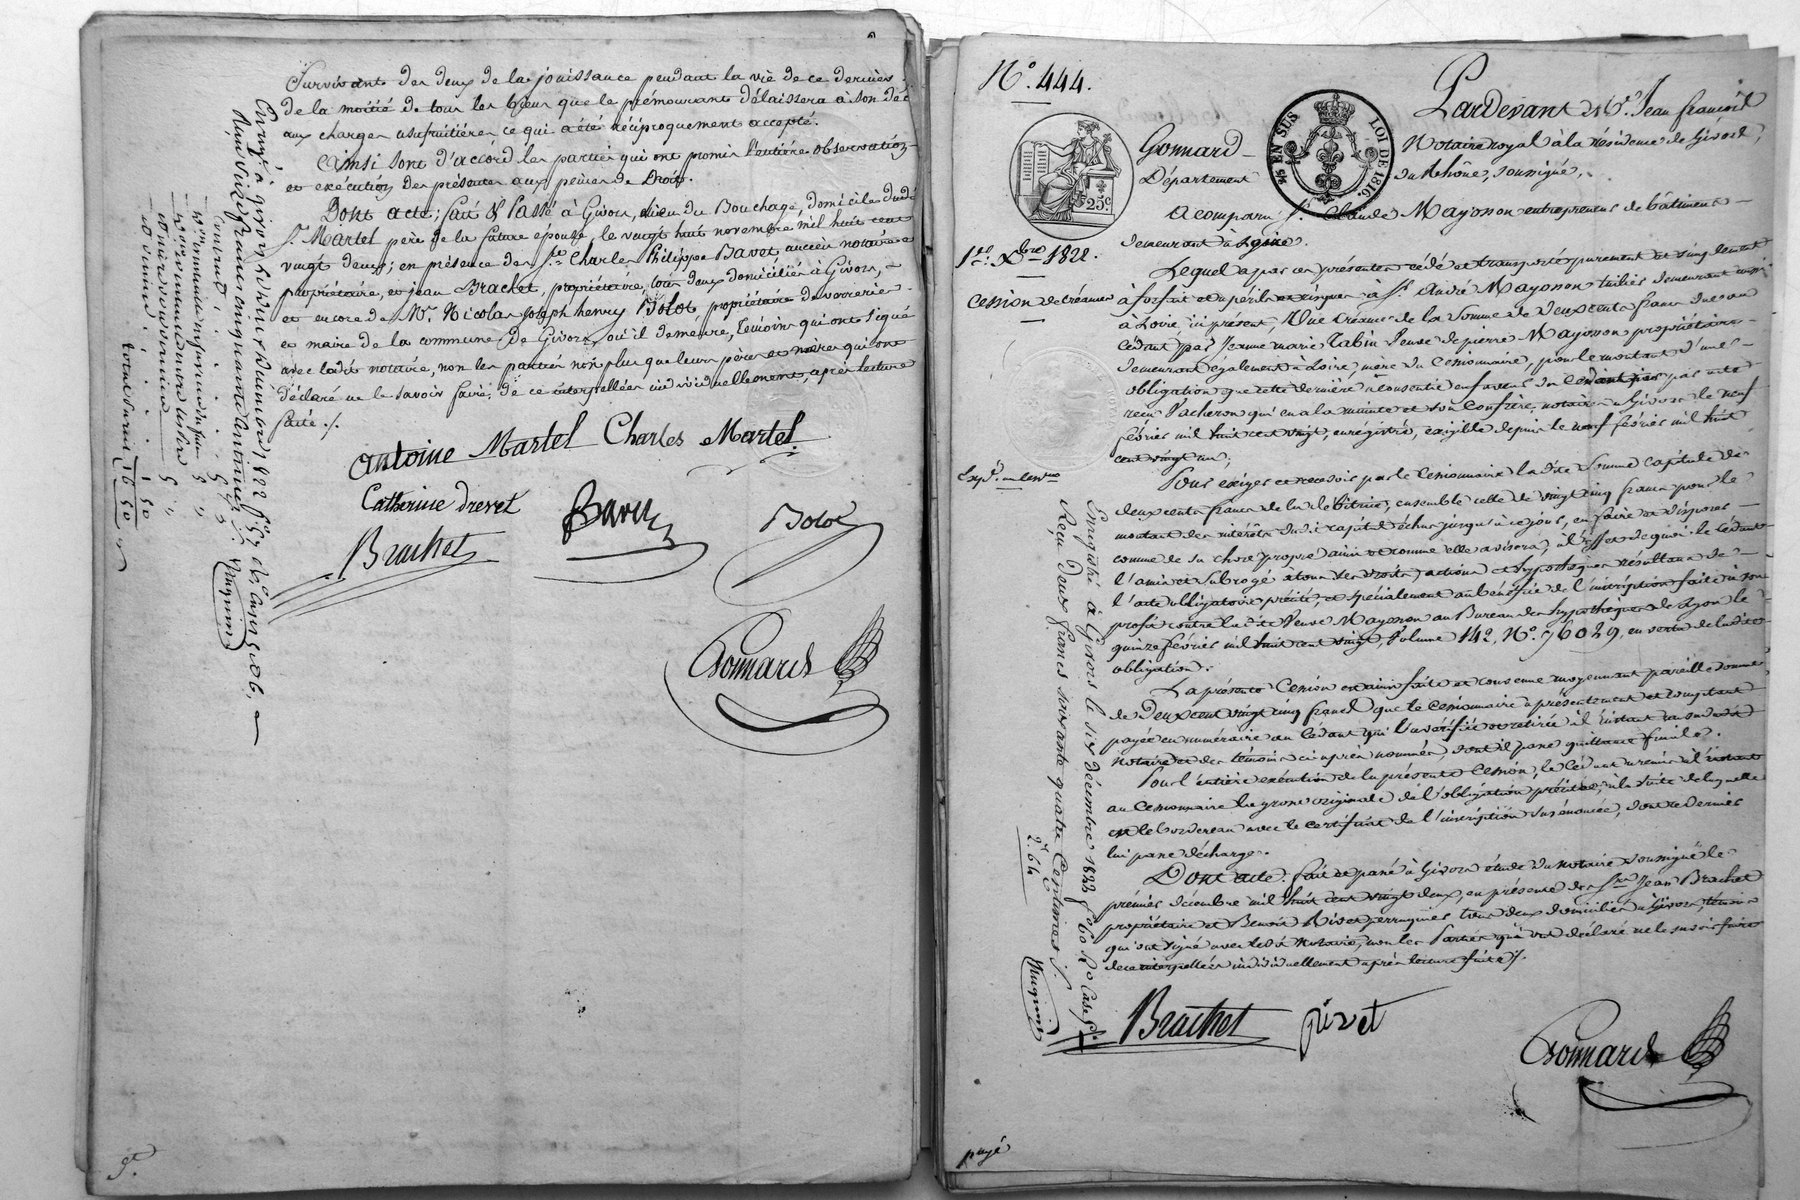 Survivant des deux de la jouissance pendant la vie de ce dernier
de la moitié de tous les biens que le prémourant délaissera à son déc
aux charges usufruitières ce qui a été réciproquement accepté.
Ainsi sont d'accord les parties qui ont promis l'entière observation
et exécution des présentes aux peines de Droit.
Dont acte; fait & Passé à Givors, lieu du Bouchage, domicile dudi
Sr. Martel père de la future épouse, le vingt huit novembre mil huit cent
vingt deux; en présence des Srs. Charles Philippe Bavet ancien notaire
propriétaire, et jean Brachet, propriétaire, tous deux domiciliés à Givors,
et encore de Mr. Nicolas Joseph henry Bolot, propriétaire de verreries
et maire de la commune de Givors, où il demeure, témoins qui ont signé
avec ledit notaire, non les parties non plus que leurs pères et mères qui ont
déclaré ne le savoir faire, de ce interpellées individuellement, après lecture
faite ./.
Antoine Martel Charles Martel
Catherine drevet
Bavet
Bolot
Brachet
Gonnard
Enregistré à givors le dix décembre 1822
Reçu cinq francs cinquante centimes
total
16 50
Nº. 444.
25c
EN SUS
LOI DE 1816.
Pardevant Mr. Jean françois
Gonnard Notaire royal à la résidence de Givors,
Département du Rhône, soussigné,
A comparu Sr. Claude Mayosson entrepreneur de bâtimens
demeurant à Loire.
1er. Xbre 1822.
Cession de créances
Lequel a par ces présentes cédé et transporté purement et simplement
à forfait et au périls et risques à Sr. André Mayosson tuilier demeurant aussi
à Loire, ici présent, Une créance de la somme de deux cents francs due au
cédant par Jeanne marie Tabin Veuve de pierre Mayosson propriétaire
demeurant également à Loire, mère du cessionnaire, pour le montant d'une
obligation que cette dernière a consentie en faveur du Cédant par acte
reçu Vacheron qui en a la minute et son Confrère, notaires à Givors le neuf
février mil huit cent vingt, enregistré, exigible depuis le neuf février mil huit
cent vingt un;
Pour exiger et recevoir par le cessionnaire la dite somme capitale de
deux cents francs de la débitrice, ensemble celle de vingt cinq francs pour le
montant des intérêts dudit capital échus jusqu'à ce jour, en faire et disposer
comme de sa chose propre ainsi et comme elle avisera, à l'effet de quoi le cédant
l'a mis et subrogé à tous ses droits, actions et hypothèques résultans de
l'acte obligatoire précité, et spécialement au bénéfice de l'inscription faite à son
profit contre ladite Veuve Mayosson au Bureau des hypothèques de Lyon le
quinze février mil huit cent vingt, Volume 142, Nº. 76029, en vertu de ladite
obligation.
La présente Cession est ainsi faite et consentie moyennant pareille somme
de Deux cent vingt cinq francs que le cessionnaire a présentement et comptant
payée en numéraire au Cédant qui l'a vérifiée et retirée à l'instant au vu dudit
notaire et des témoins ci après nommés, dont il passe quittance finale.
Pour l'entière exécution de la présente Cession, le Cédant a remis à l'instant
au Cessionnaire la grosse originale de l'obligation précitée, à la suite de laquelle
est le bordereau avec le certificat de l'inscription susénoncée, dont ce Dernier
lui passe décharge.
Dont acte: fait et passé à Givors étude du notaire soussigné le
premier décembre mil huit cent vingt deux, en présence des Srs. Jean Brachet
propriétaire et Benoit Rivet perruquier tous deux domiciliés à Givors, témoins
qui ont signé avec ledit Notaire, non les Parties qui ont déclaré ne le savoir faire
de ce interpellées individuellement après lecture faite ./.
Enregistré à Givors le dix décembre 1822 fº. 60 Rº Case
Reçu deux francs soixante quatre Centimes
2f 64
Brachet rivet
Gonnard
payé